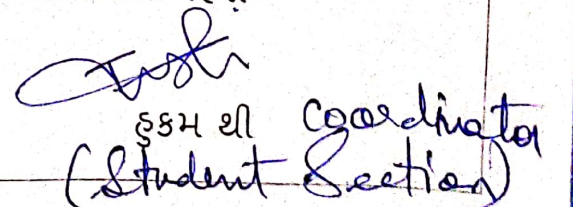 હુકમ થી coordinator
(Student Section)